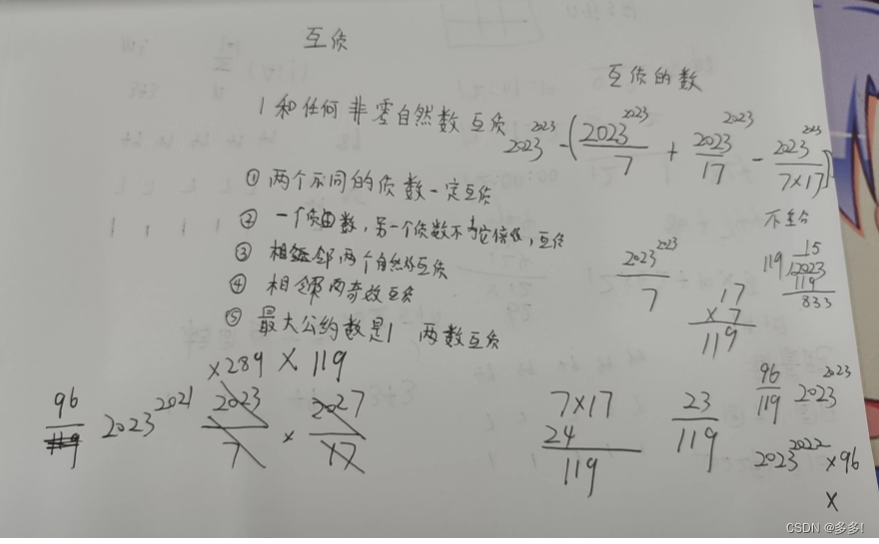 互质
互质的数
1和任何非零自然数互质
2023^2023 - (2023^2023/7 + 2023^2023/17 - 2023^2023/(7×17))
① 两个不同的质数一定互质
② 一个质数,另一个质数不为它倍数,互质
不互
③ 相邻两个自然数互质
④ 相邻两奇数互质
⑤ 最大公约数是1 两数互质
2023^2023/7
17
×7
119
15
119 2023
119
833
×289 × 119
96/119 2023^2021 2023/7 × 2027/17
7×17
24
119
23/119
96/119 2023^2023
2023^2022 ×96
×
CSDN @多多!